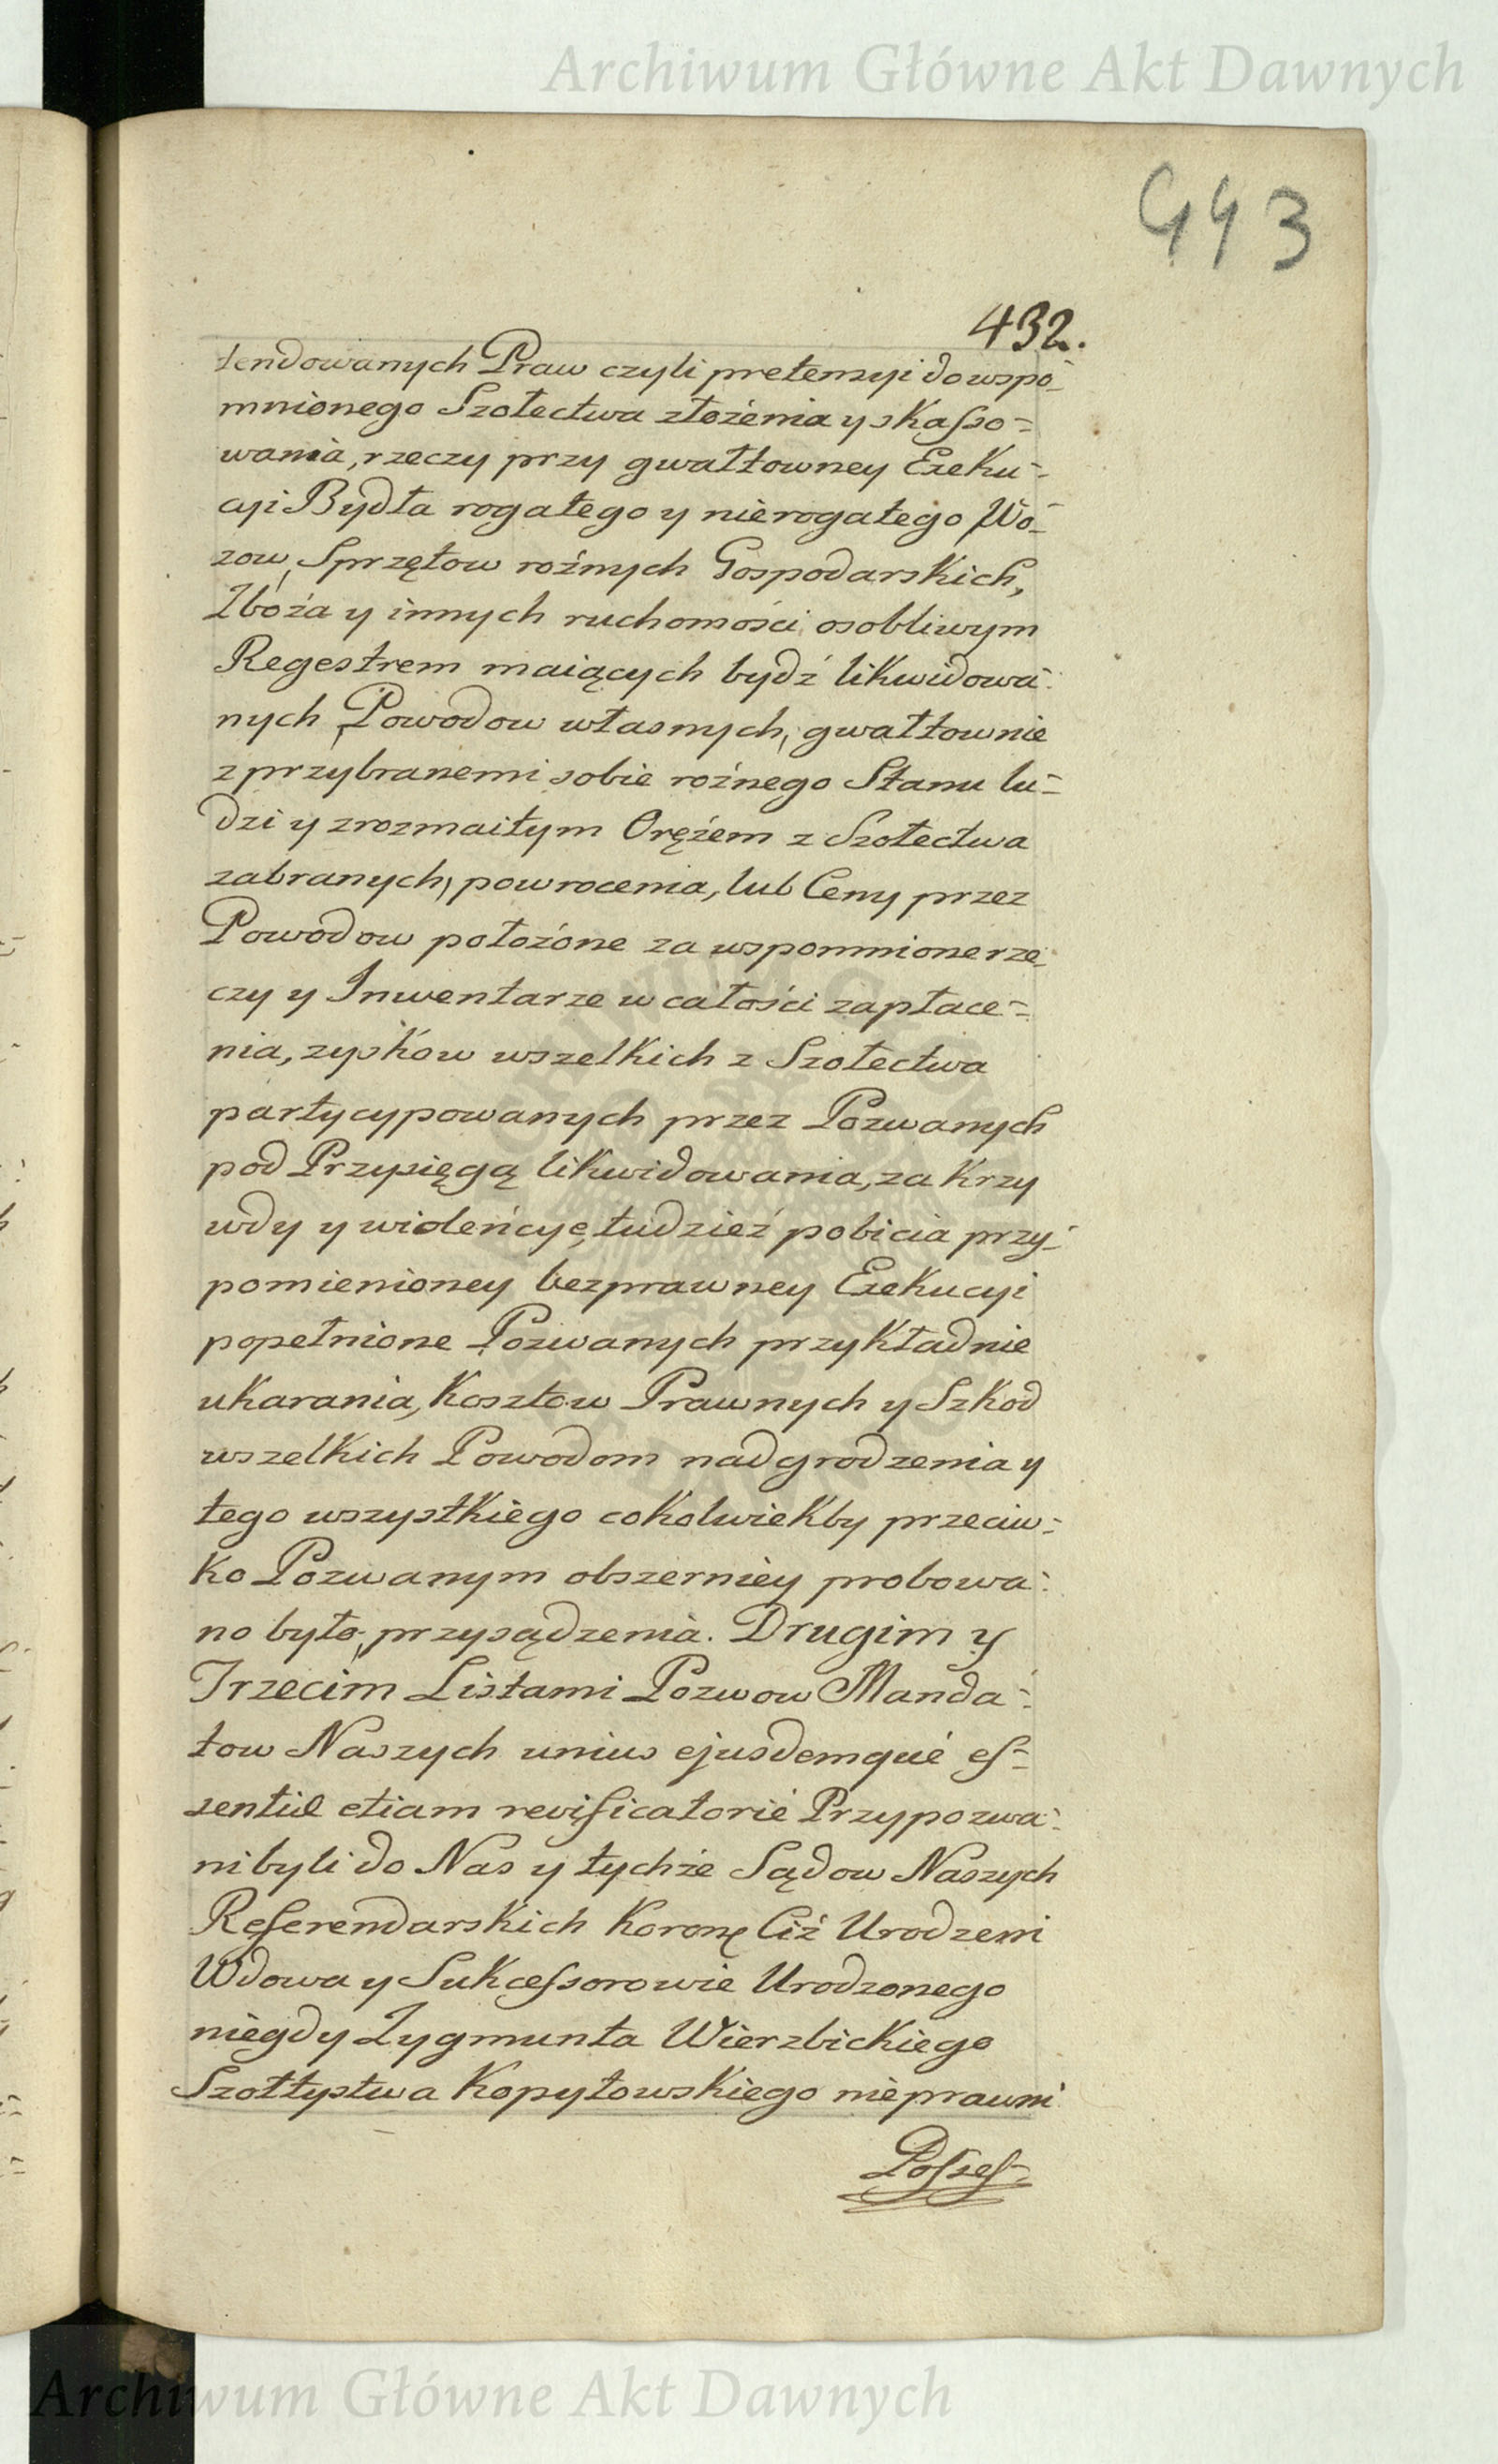 Archiwum Główne Akt Dawnych
443
432.
tendowanych Praw czyli pretensyi do wspo-
mnionego Szołectwa złożenia y skasso-
wania, rzeczy przy gwałtowney Exeku-
cyi Bydła rogatego y nierogatego Wo-
zow, Sprzętow rożnych Gospodarskich,
Zboża y innych ruchomości osobliwym
Regestrem maiących bydź likwidowa-
nych Powodow własnych, gwałtownie
z przybranemi sobie rożnego Stanu lu-
dzi y zrozmaitym Orężem z Szołectwa
zabranych, powrocenia, lub Ceny przez
Powodow położone za wspomnione rze-
czy y Inwentarze w całości zapłace-
nia, zyskow wszelkich z Szołectwa
partycypowanych przez Pozwanych
pod Przysięgą likwidowania, za krzy
wdy y wioleńcye, tudzież pobicia przy-
pomienioney bezprawney Exekucyi
popełnione Pozwanych przykładnie
ukarania, Kosztow Prawnych y Szkod
wszelkich Powodom nadgrodzenia y
tego wszystkiego cokolwiekby przeciw-
ko Pozwanym obszerniey probowa-
no było, przysądzenia. Drugim y
Trzecim Listami Pozwow Manda-
tow Naszych unius ejusdemque es-
sentiæ etiam revificatorie Przypozwa-
ni byli do Nas y tychże Sądow Naszych
Referendarskich Koronę Ciż Urodzeni
Wdowa y Sukcessorowie Urodzonego
niegdy Zygmunta Wierzbickiego
Szołtystwa Kopytowskiego nieprawni
Posses-
Archiwum Główne Akt Dawnych